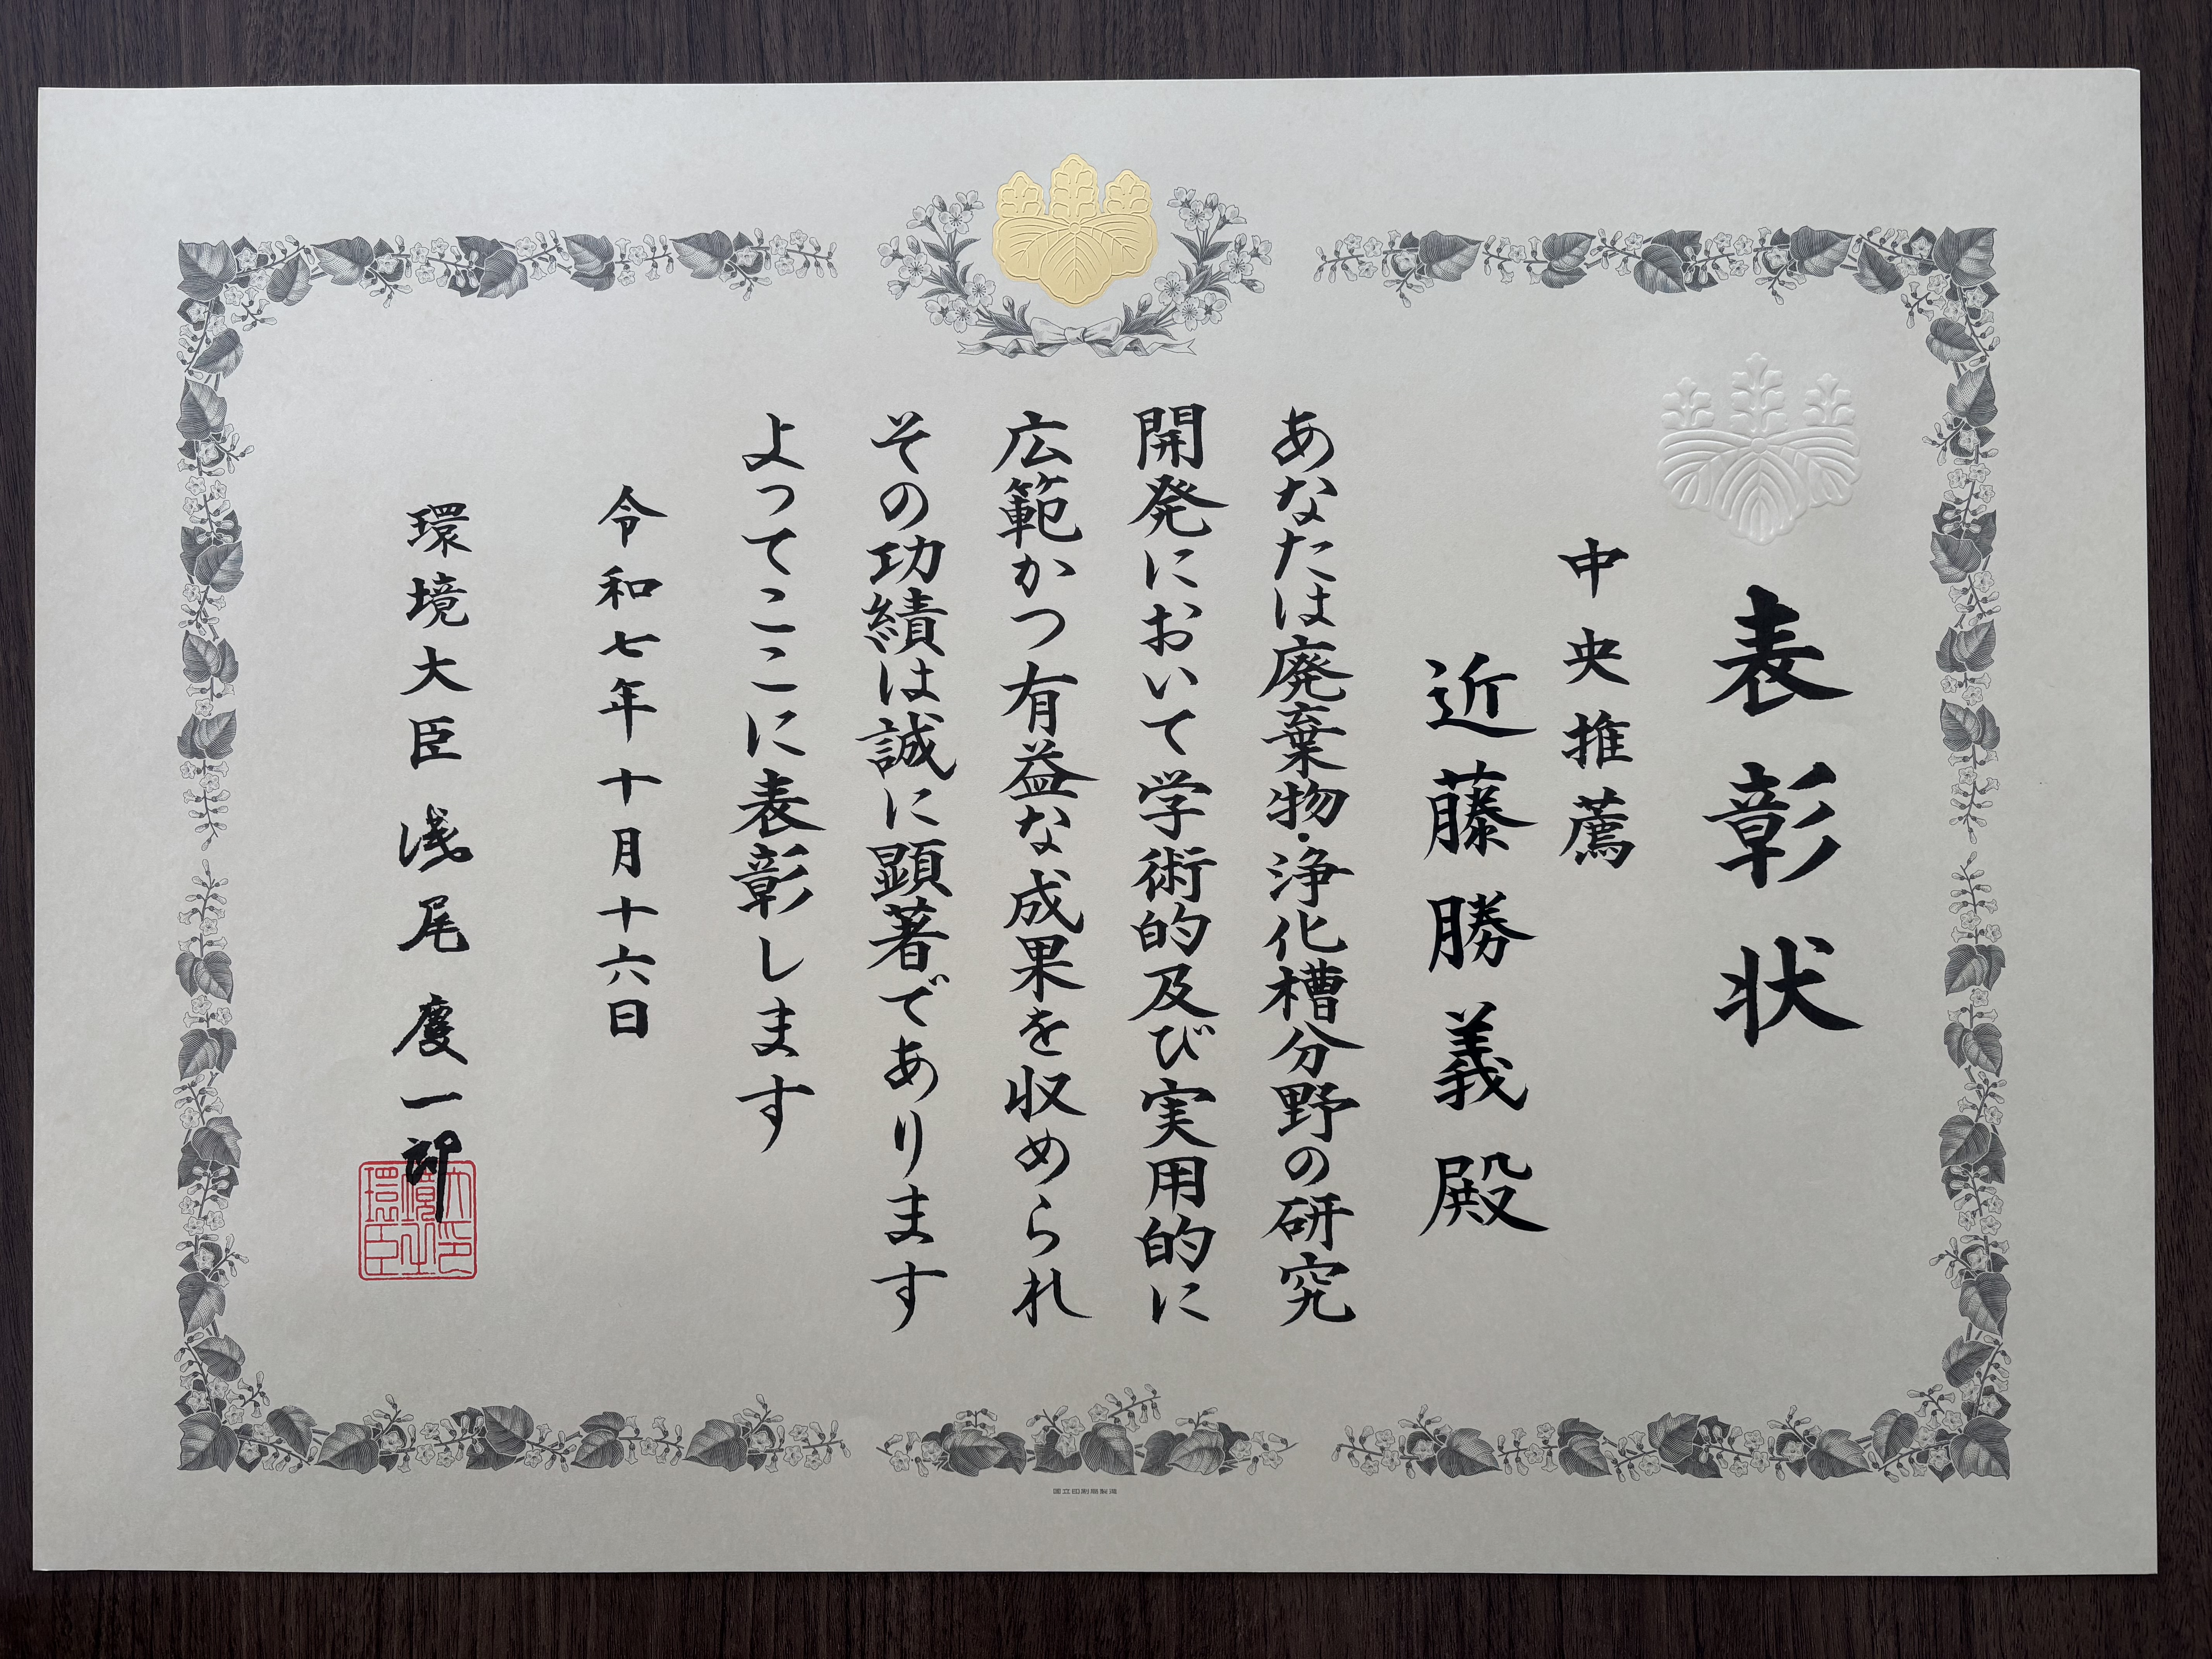 表彰状
中央推薦
近藤勝義殿
あなたは廃棄物・浄化槽分野の研究
開発において学術的及び実用的に
広範かつ有益な成果を収められ
その功績は誠に顕著であります
よってここに表彰します
令和七年十月十六日
環境大臣 浅尾慶一郎
環境大臣之印
国立印刷局製造